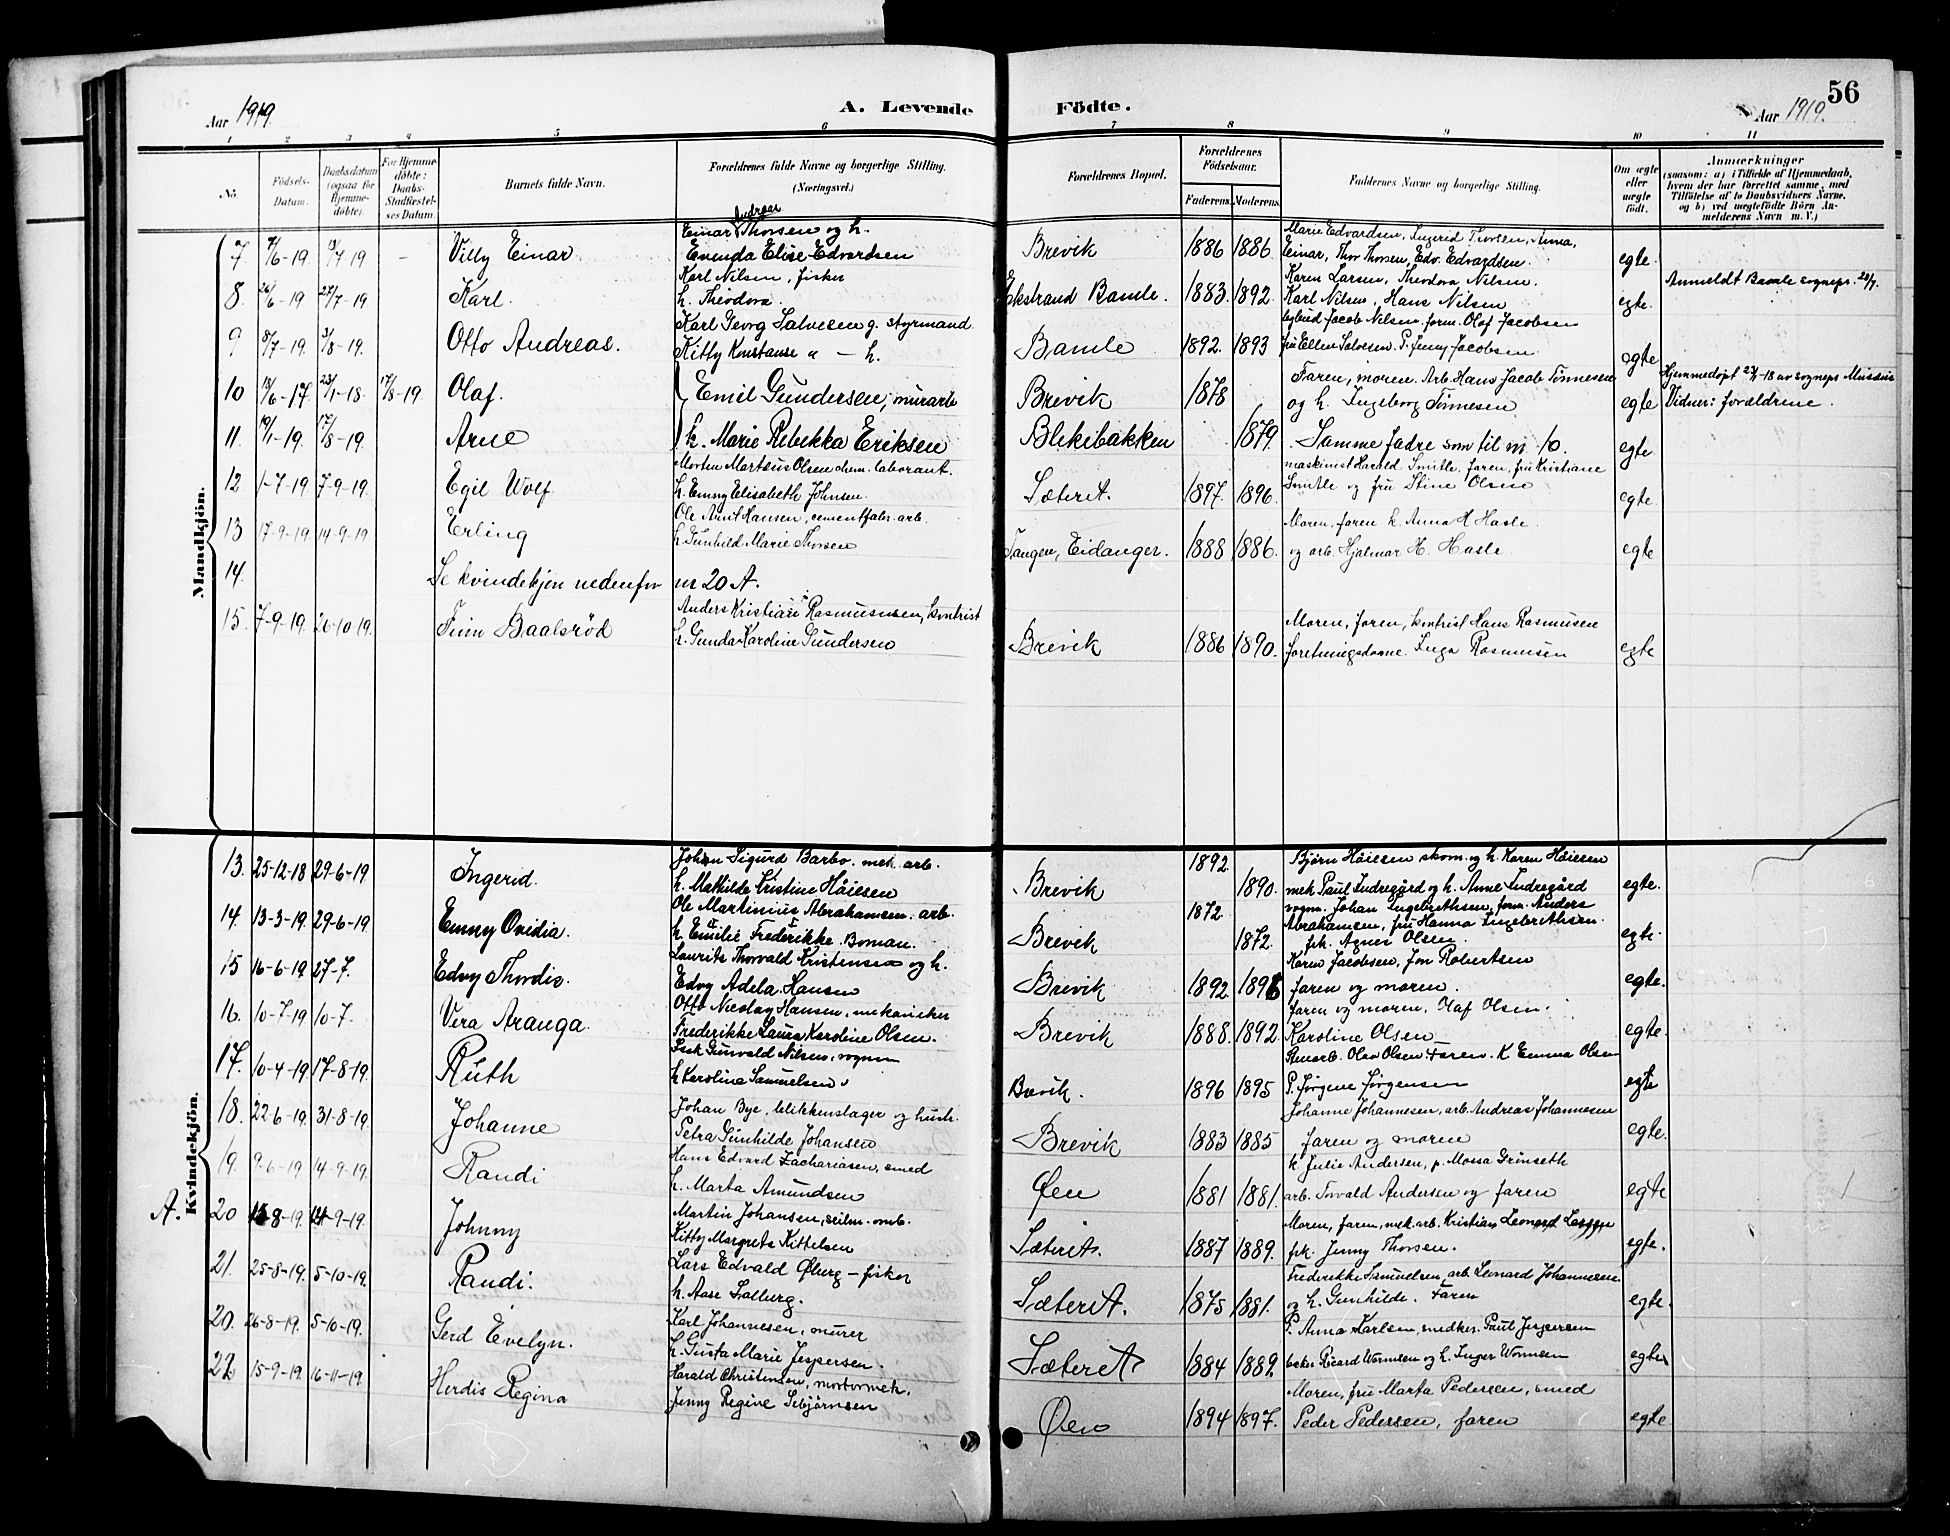 56
Aar 1919.
A. Levende Födte.
Aar 1919.
1 2 3 4 5 6 7 8 9 10 11
No.
Födsels-Datum.
Daabsdatum (ogsaa for Hjemme-döbte).
For Hjemme-döbte: Daabs-Stadfæstel-ses Datum.
Barnets fulde Navn.
Forældrenes fulde Navne og borgerlige Stilling. (Næringsvei.)
Forældrenes Bopæl.
Forældrenes Födselsaar.
Faderens. Moderens.
Faddernes Navne og borgerlige Stilling.
Om ægte eller uægte födt.
Anmærkninger
(saasom: a) i Tilfælde af Hjemmedaab, hvem der har forrettet samme, med Tilföielse af to Daabsvidners Navne, og b) ved uægtefödte Börn An-melderens Navn m. V.)
Mandkjön.
7 19/7 19 - Villy Einar
Andreas
Einar Thorsen og h.
Evenda Elise Edvardsen
Brevik 1886 1886
Marie Edvardsen, Ingerid Thorsen, Anna,
Einar, Thor Thorsen, Edv. Edvardsen.
egte.
8 26/6-19 27/7-19 Karl.
Karl Nilsen, fisker
h. Theodora.
Ekstrand Bamle. 1883. 1892.
Karen Larsen, Theodora Nilsen.
Karl Nilsen, Hans Nilsen
egte.
Anmeldt Bamle sognepr. 28/7.
9 8/7-19. 3/8-19. Otto Andreas.
Karl Georg Salvesen g. styrmand
Kitty Konstanse " - h.
Bamle 1892. 1893
Jacob Nilsen, form. Olaf Jacobsen
fru Ellen Salvesen. P. Jenny Jacobsen
egte
10 13/6-17 23/1-18. 17/8-19. Olaf.
Emil Gundersen, murarb
Brevik 1878
Faren, moren, Arb. Hans Jacob Tønnesen
og h. Ingeborg Tønnesen
egte
Hjemmedøpt 23/1-18 av sognepr. Musæus
Vidner: forældrene.
11. 19/1-19. 17/8-19 Arne
h. Marie Rebekka Eriksen
Blekibakken 1879.
Samme fadre som til nr. 10.
egte
12 1-7-19 7-9-19. Egil Wolf
Morten Marteus Olsen chem. laborant.
h. Emmy Elisabeth Johnsen.
Sæteret. 1897. 1896.
maskinist Harald Smitle, faren, fru Kristiane
Smitle og fru Stine Olsen
egte.
13 17-9-19. 14-9-19 Erling
Ole Arnt Hansen, cementfabr. arb.
h. Gunhild Marie Thorsen
Tangen, Eidanger. 1888 1886.
Moren, faren h. Anna H Hasle.
og arb. Hjalmar H. Hasle.
egte
14. Se kvindekjøn nedenfor nr 20 A.
15. 7-9-19. 26-10 19. Finn Baalsrød
Anders Kristian Rasmussen, kontrist
h. Gunda Karoline Gundersen
Brevik 1886 1890.
Moren, faren, kontrist Hans Rasmussen
foretningsdame. Inga Rasmussen
egte
Kvindekjön.
13. 25-12-18 29-6-19 Ingerid.
Johan Sigurd Barbo. mek. arb.
h. Mathilde Kristine Høiesen
Brevik 1892. 1890.
Bjørn Høiesen skom. og h. Karen Høiesen
mek Paul Indregård og h. Anne Indregård
egte.
14. 13-3-19. 29-6-19. Emmy Ovidia.
Ole Martinius Abrahamsen. arb.
h. Emilie Frederikke Boman.
Brevik 1872. 1872.
vogm. Johan Ingebrethsen, form. Anders
Abrahamsen, fru Hanna Ingebrethsen.
frk. Agnes Olsen.
egte.
15 16-6-19 27-7. Edvy Thordis.
Laurits Thorvald Kristensen og h.
Edvy Adela Hansen
Brevik 1892 1896
Karen Jacobsen, Jon Robertsen
faren og moren.
egte.
16. 10-7-19 10-7. Vera Aranga.
Otto Nicolay Hansen, mekaniker
Frederikke Laura Karoline Olsen.
Brevik 1888. 1892.
faren og moren, Olaf Olsen.
Karoline Olsen
egte.
17. 10-4-19 17-8-19. Ruth
Isak Gunvald Nilsen, vogm
h. Karolina Samuelsen
Brevik. 1896 1895
Stenarb. Olav Olsen. Faren. K. Emma Olsen
P. Jørgine Jørgensen
egte
18. 22-6-19. 31-8-19. Johanne
Johan Bye, blikkenslager og hustr.
Petra Gunhilde Johansen
Brevik 1883 1885
Johanne Johannesen, arb. Andreas Johannesen
faren og moren
egte.
19. 9-6-19 14-9-19. Randi
Hans Edvard Zachariasen, smed
h. Marta Amundsen
Øen 1881 1881.
k. Julie Andersen, p. Mossa Grinseth
arb. Torvald Andersen og faren
egte
A. 20 15-8-19. 14-9-19. Johnny
Martin Johansen, seilm. omb.
Kitty Margrete Kittelsen
Sæteret. 1887 1889.
Moren, faren, mek. arb. Kristian Leonard
frk. Jenny Thorsen.
egte.
21. 25-8-19. 5-10-19. Randi.
Lars Edvald Øberg - fisker
h. Aase Solberg.
Sæteret. 1875 1881.
Frederikke Samuelsen, arb. Leonard Johannesen
og h. Gunhilde. Faren
egte.
20. 26-8-19. 5-10-19. Gerd Evelyn.
Karl Johannesen, murer
h. Gusta Marie Jespersen.
Sæteret 1884 1889.
P. Anna Karlsen, snedker. Paul Jespersen
Ricard Wormsen og h. Inger Wormsen
egte
22 15-9-19. 16-11-19. Herdis Regina
Harald Christensen, motormek.
Jenny Regine Sebjørnsen
Øen 1894 1897.
Moren, fru Marta Pedersen, smed
Peder Pedersen, faren
egte